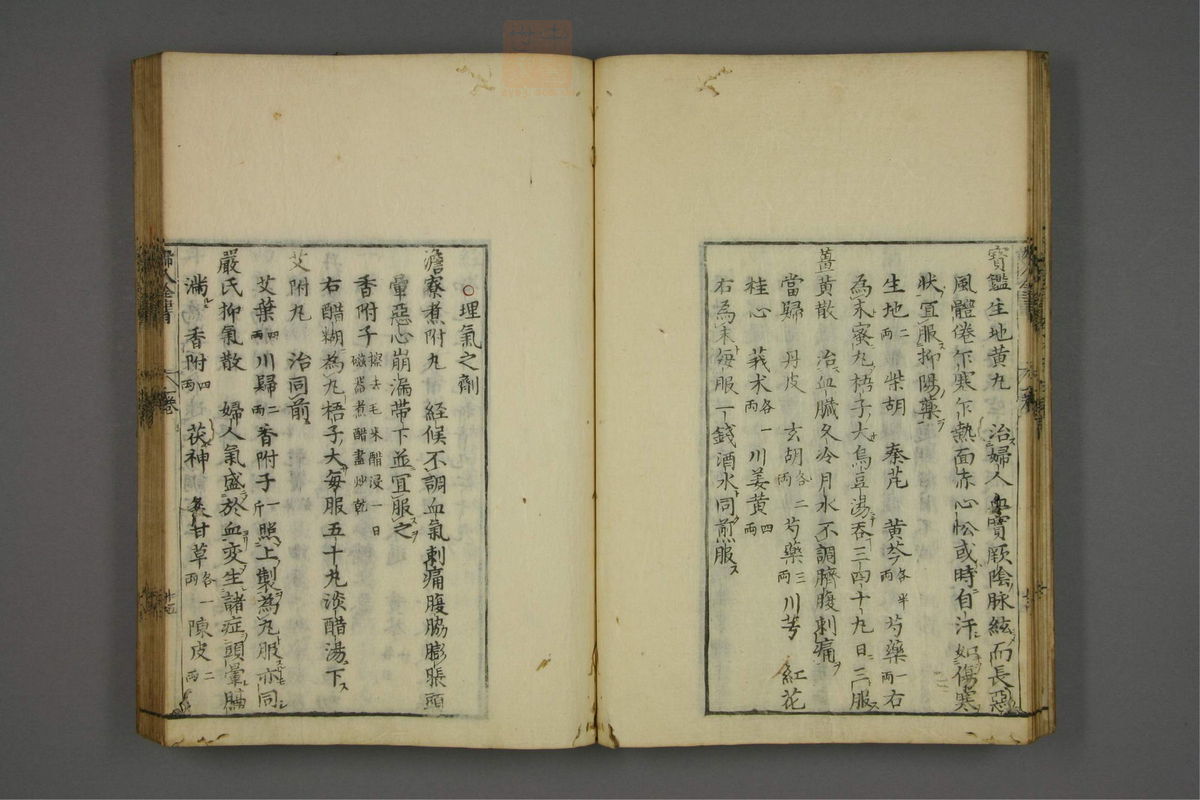 寶鑑生地黃丸　治婦人血實厥陰脉絃而長惡
風體倦乍寒乍熱面赤心忪或時自汗如傷寒
狀宜服抑陽藥
生地二兩　柴胡　秦芃　黃芩各半兩　芍藥一兩右
為末蜜丸梧子大烏豆湯吞三四十丸日三服
薑黃散　治血臟久冷月水不調臍腹刺痛
當歸　丹皮　玄胡各二兩　芍藥三兩　川芎　紅花
桂心　莪术各一兩　川姜黃四兩
右為末每服一錢酒水同煎服
理氣之劑
澹寮煮附丸　經候不調血氣刺痛腹脇膨脹頭
暈惡心崩漏帶下並宜服之
香附子擦去毛米醋浸一日磁器煮醋盡炒乾
右醋糊為丸梧子大每服五十丸淡醋湯下
艾附丸　治同前
艾葉四兩川歸二兩香附子一斤照上製為丸服亦同
嚴氏抑氣散　婦人氣盛於血变生諸症頭暈膈
滿　香附四兩　茯神　炙甘草各一兩　陳皮二兩
婦人全書